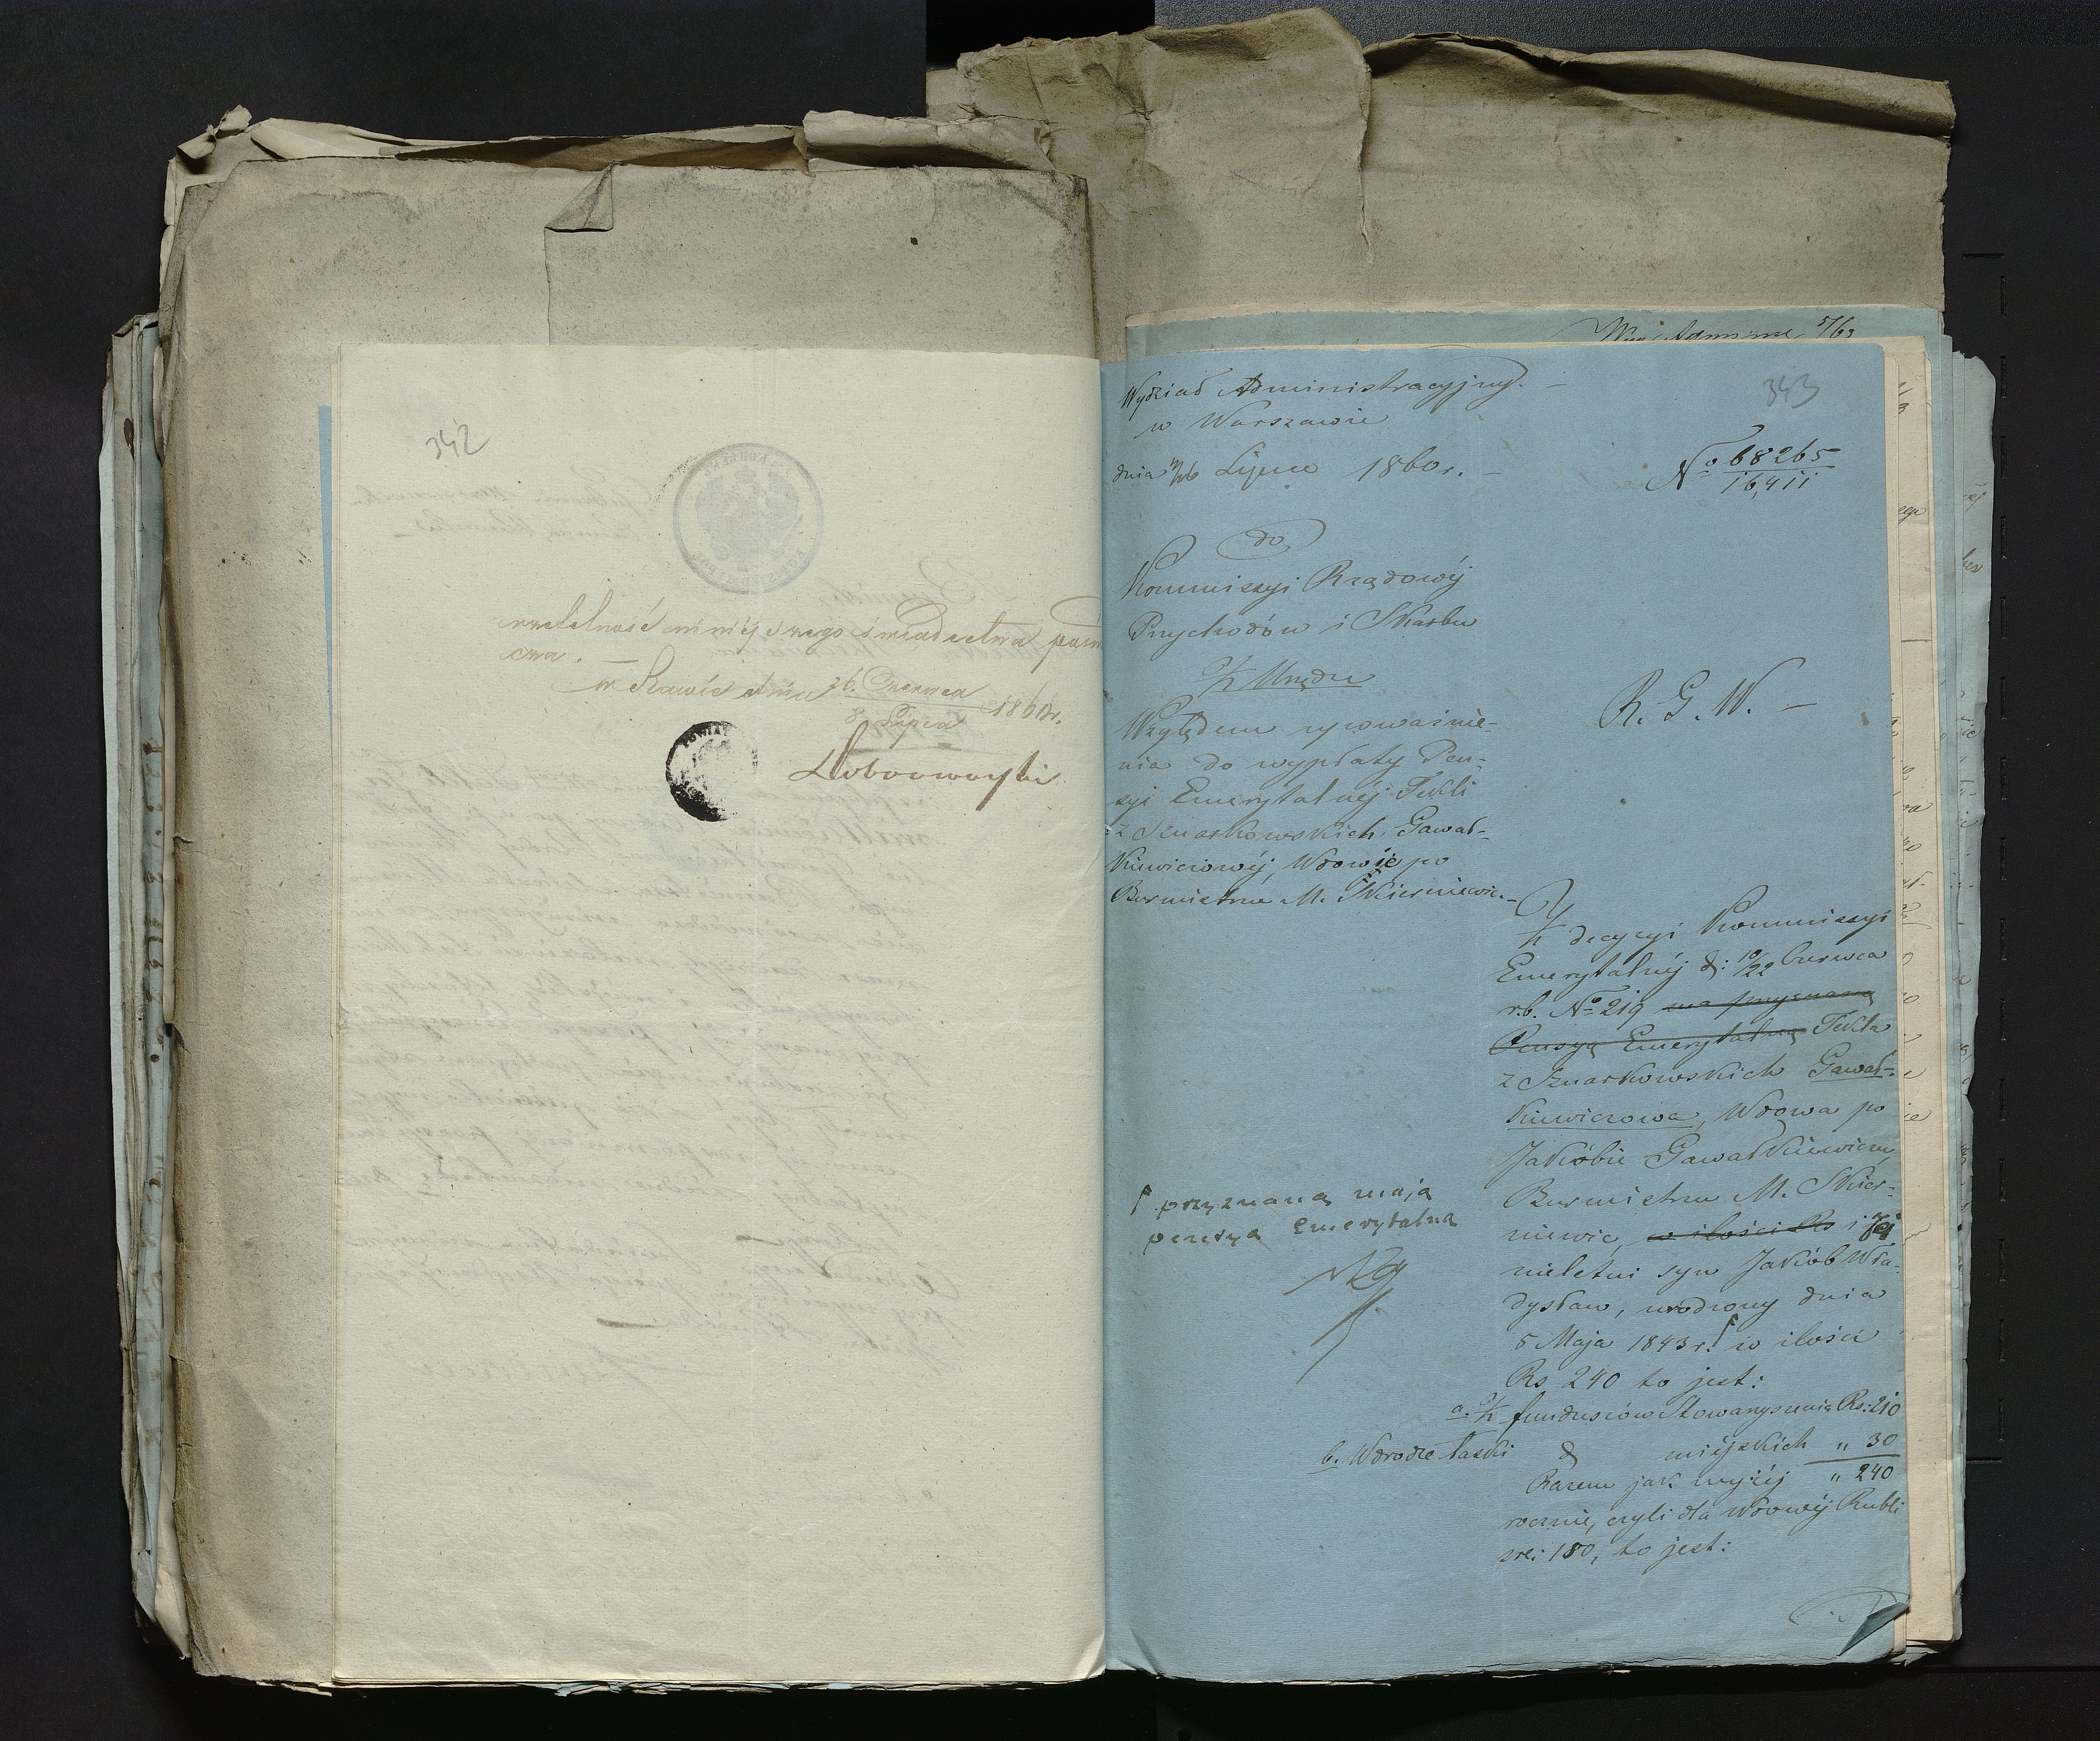 342
rzetelność niniejszego świadectwa
w Rawie dnia 26. Czerwca
8 Lipca 1860r.
Wydział Administracyjny. —
w Warszawie
dnia 14/26 Lipca 1860r. —
343
No 68265
16,411
do
Kommissyi Rządowéj
Przychodów i Skarbu
Z Urzędu
Względem upoważnie-
nia do wypłaty Pen-
syi Emerytalnéj Tekli
z Sznarkowskich Gawał-
kiewiczowéj, Wdowie po
Burmistrzu M. Skierniewic. —
R. G. W. —
Z decyzyi Kommissyi
Emerytalnéj d: 10/22 Czerwca
r.b. No 219 ma przyznaną
Pensyą Emerytalną Tekla
z Sznarkowskich Gawał-
kiewiczowa, Wdowa po
Jakóbie Gawałkiewiczu
Burmistrzu M. Skier-
niewic, w ilości Rs i jéj
nieletni syn Jakób Wła-
dysław, urodzony dnia
5 Maja 1843 r. w ilości
Rs 240 to jest:
przyznaną mają
pensya emerytalna
a. Z funduszów Stowarzyszenia Rs: 210
b. W drodze łaski d miéjskich „ 30
Razem jak wyżéj „ 240
rocznie, czyli dla Wdowy Rubli
sre: 180, to jest: